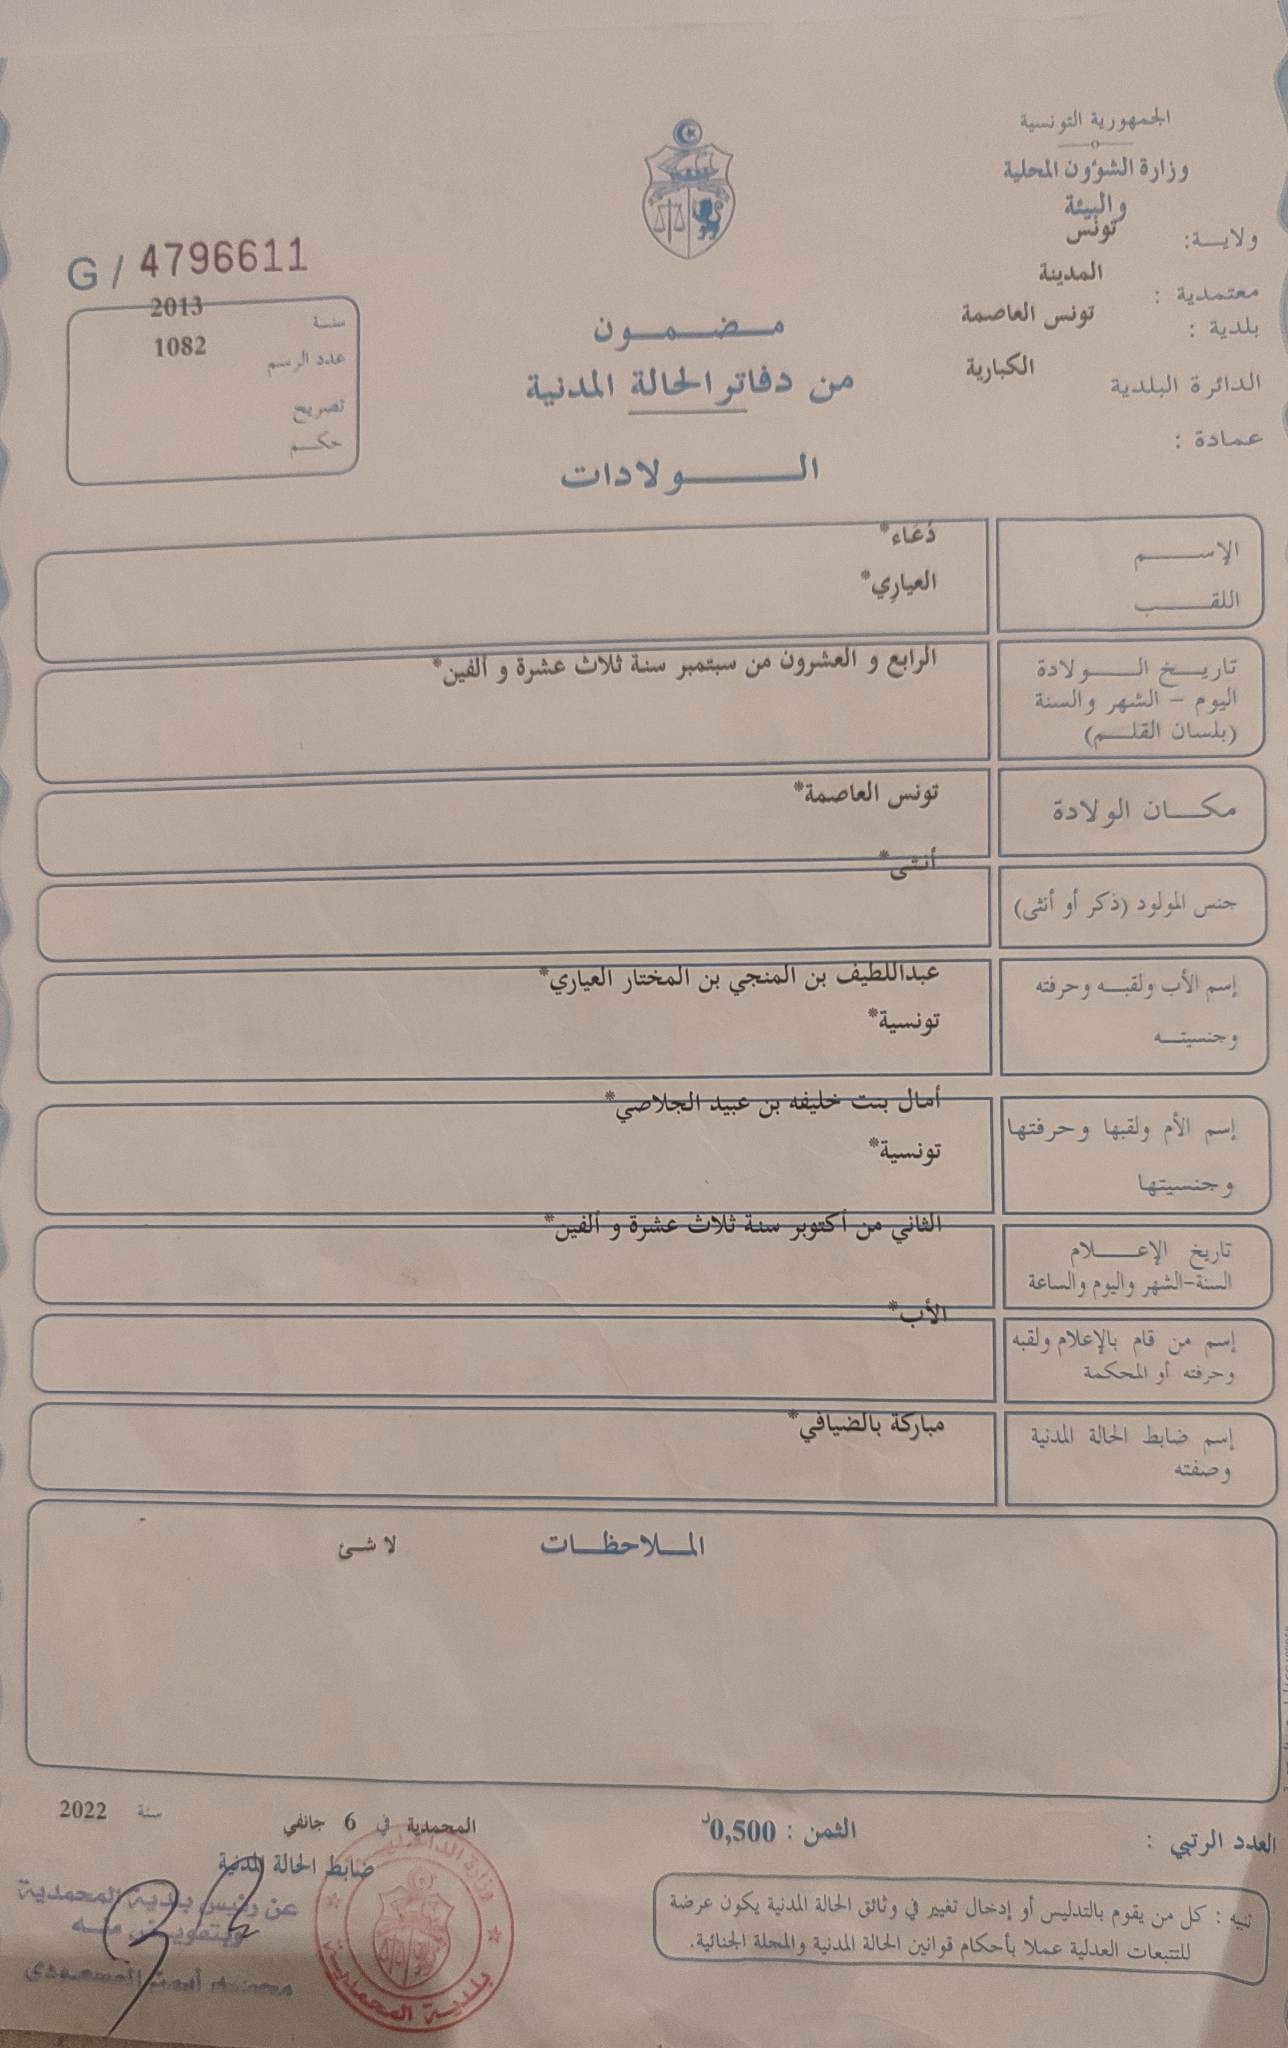 الجمهورية التونسية
وزارة الشؤون المحلية
والبيئة
ولايــة: تونس
معتمدية : المدينة
بلدية : تونس العاصمة
الدائرة البلدية الكبارية
عمادة :
G / 4796611
سنة 2013
عدد الرسم 1082
تصريح
حكم
مـضـمـون
من دفاتر الحالة المدنية
الـولادات
الإسـم دُعَاء*
اللقـب العيارِي*
تاريـخ الـولادة
اليوم – الشهر والسنة
(بلسان القلـم)
الرابع و العشرون من سبتمبر سنة ثلاث عشرة و ألفين*
مكـان الولادة تونس العاصمة*
جنس المولود (ذكر أو أنثى) أنثى*
إسم الأب ولقبـه وحرفته عبداللطيف بن المنجي بن المختار العياري*
وجنسيتـه تونسية*
إسم الأم ولقبها وحرفتها أمال بنت خليفه بن عبيد الجلاصي*
وجنسيتها تونسية*
تاريخ الإعـلام
السنة-الشهر واليوم والساعة
الثاني من أكتوبر سنة ثلاث عشرة و ألفين*
إسم من قام بالإعلام ولقبه
وحرفته أو المحكمة
الأب*
إسم ضابط الحالة المدنية
وصفته
مباركة بالضيافي*
المـلاحظـات لا شئ
العدد الرتبي :
الثمن : 0,500د
المحمدية في 6 جانفي سنة 2022
ضابط الحالة المدنية
عن رئيس بلدية المحمدية
وبتفويض منه
تنبيه : كل من يقوم بالتدليس أو إدخال تغيير في وثائق الحالة المدنية يكون عرضة
للتتبعات العدلية عملا بأحكام قوانين الحالة المدنية والمجلة الجنائية.
بلدية المحمدية